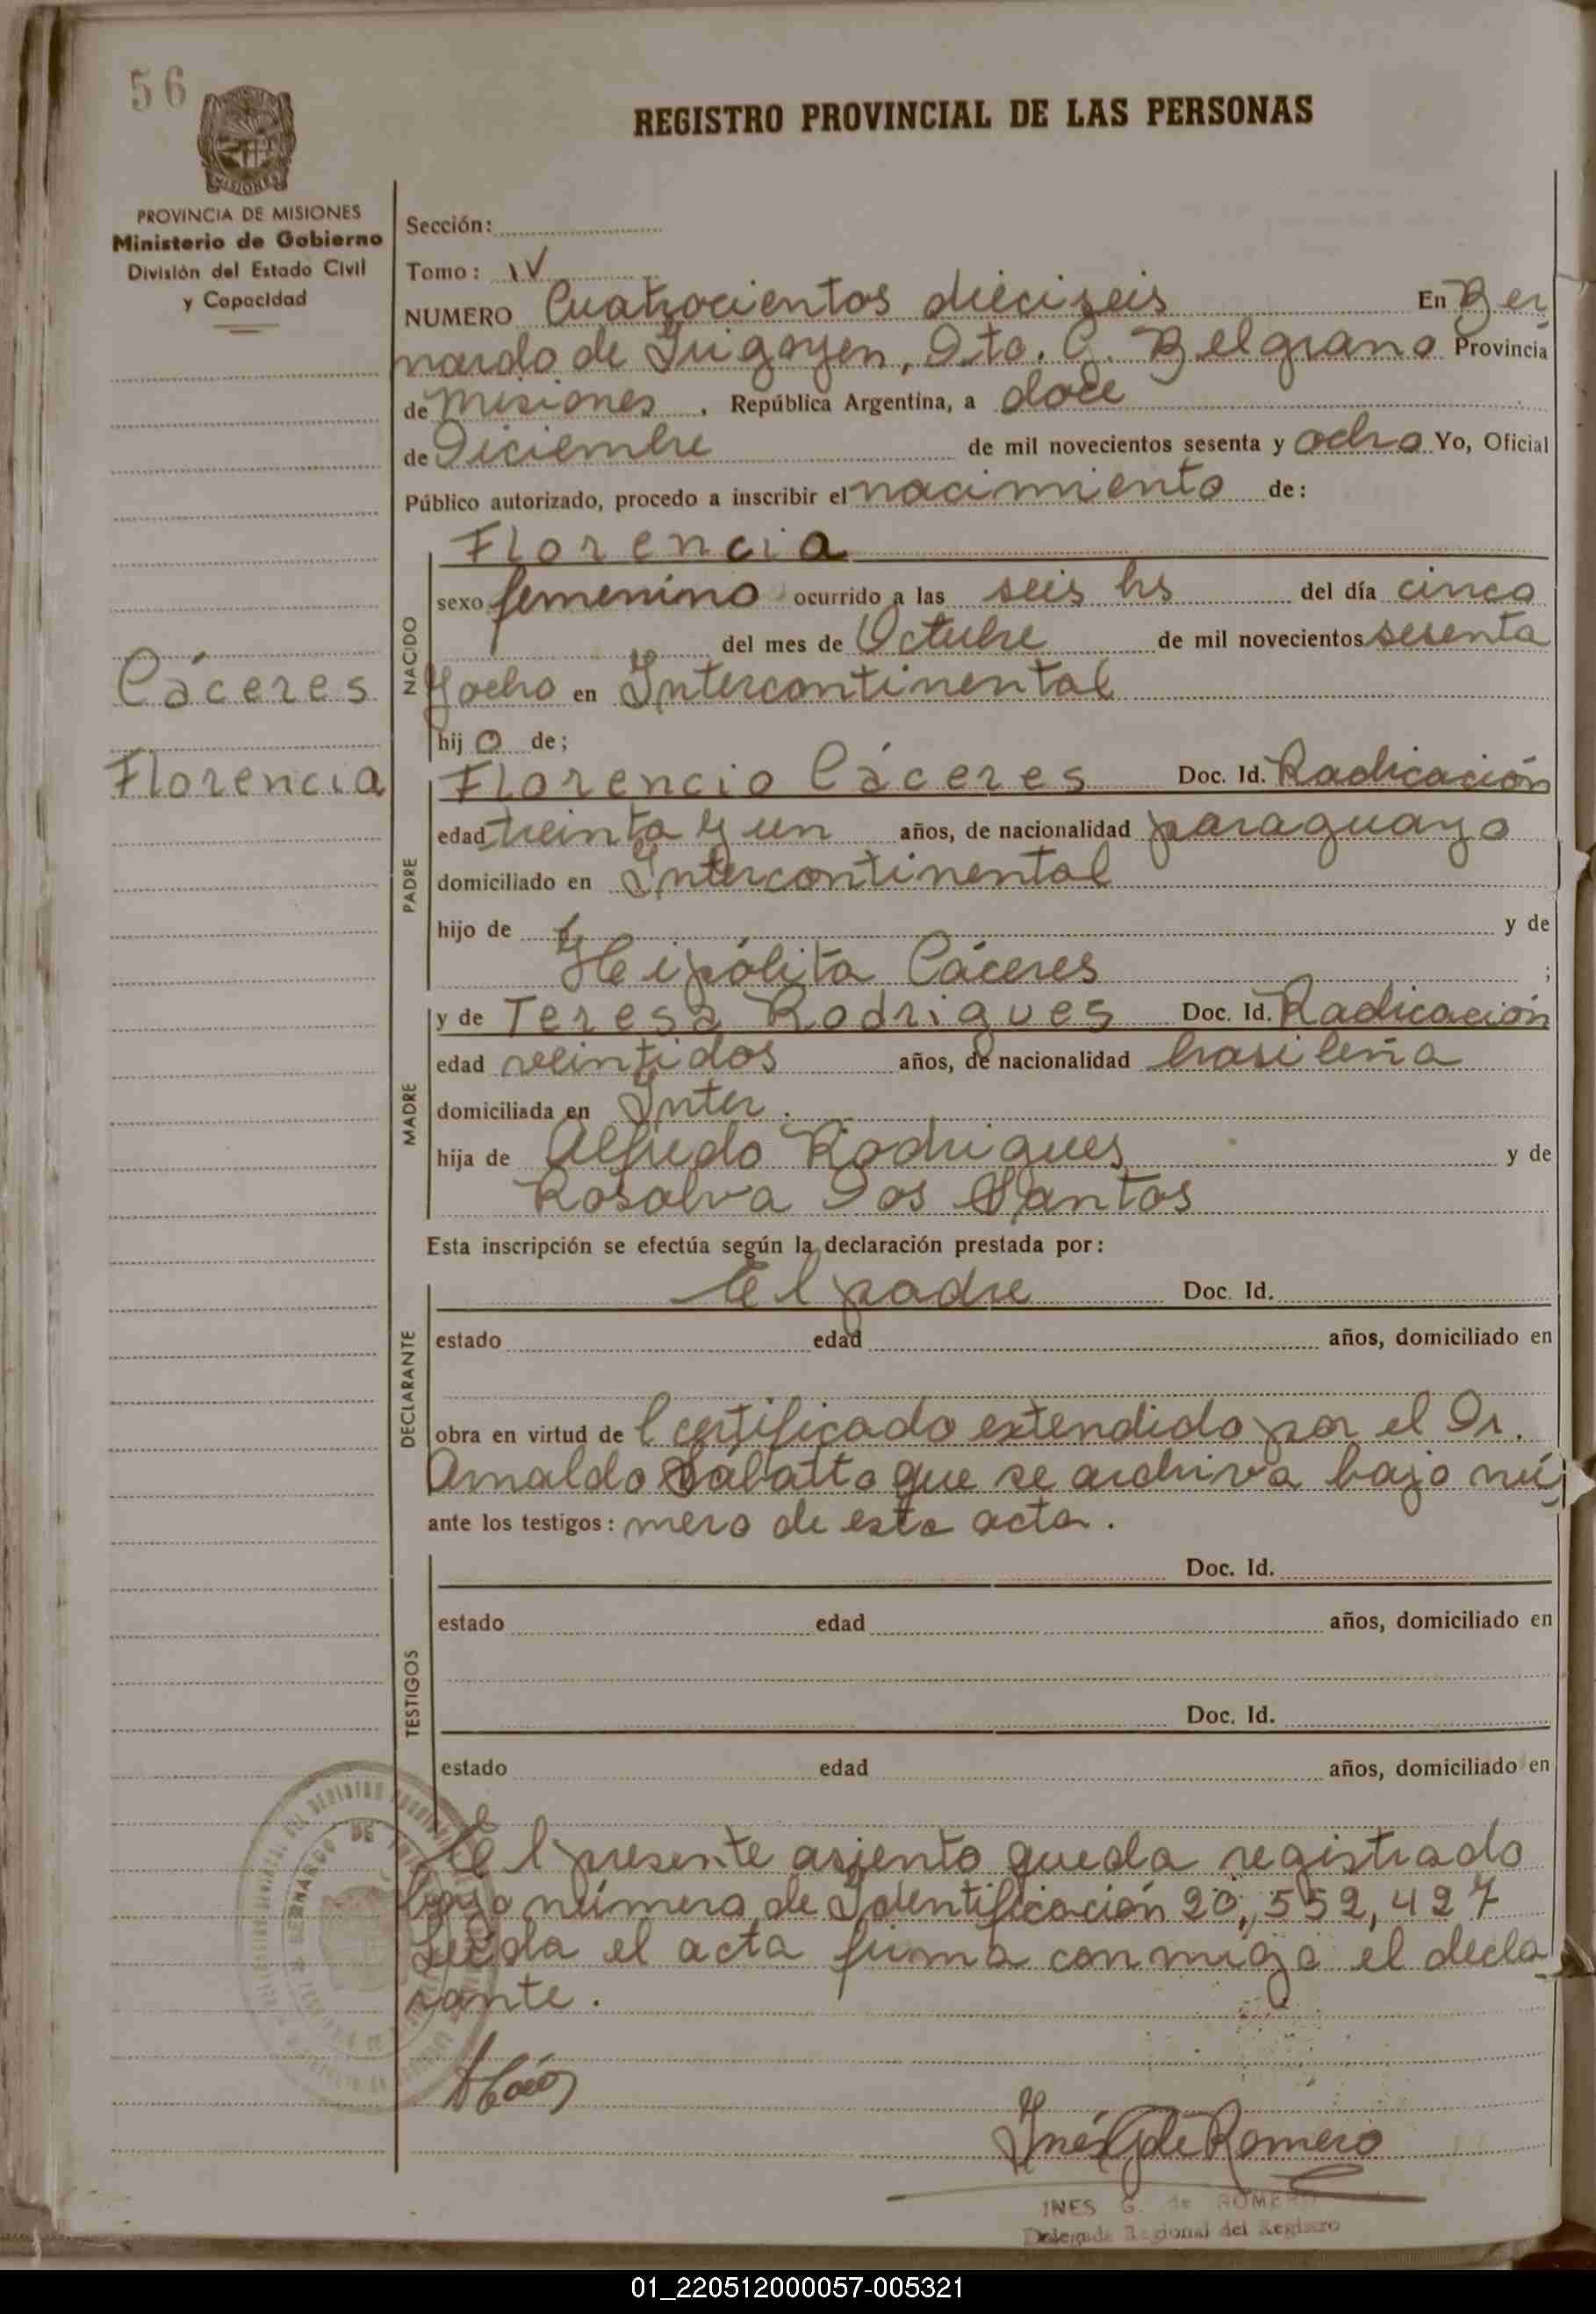 56
MISIONES
PROVINCIA DE MISIONES
Ministerio de Gobierno
División del Estado Civil
y Capacidad
REGISTRO PROVINCIAL DE LAS PERSONAS
Sección:
Tomo: IV
NUMERO Cuatrocientos dieciseis En Ber
nardo de Irigoyen, Dto. G. Belgrano Provincia
de Misiones, República Argentina, a doce
de Diciembre de mil novecientos sesenta y ocho Yo, Oficial
Público autorizado, procedo a inscribir el nacimiento de:
Florencia
NACIDO
sexo femenino ocurrido a las seis hs del día cinco
del mes de Octubre de mil novecientos sesenta
y ocho en Intercontinental
hij o de;
Cáceres
Florencia
PADRE
Florencio Cáceres Doc. Id. Radicación
edad treinta y un años, de nacionalidad paraguayo
domiciliado en Intercontinental
hijo de y de
Heipólita Cáceres ;
MADRE
y de Teresa Rodrigues Doc. Id. Radicación
edad veintidos años, de nacionalidad brasileña
domiciliada en Inter.
hija de Alfredo Rodrigues y de
Rosalva Dos Santos
Esta inscripción se efectúa según la declaración prestada por:
DECLARANTE
El padre Doc. Id.
estado edad años, domiciliado en
obra en virtud de l certificado extendido por el Dr.
Arnaldo Sabatto que se archiva bajo nú
ante los testigos: mero de esta acta.
TESTIGOS
Doc. Id.
estado edad años, domiciliado en
Doc. Id.
estado edad años, domiciliado en
El presente asiento queda registrado
bajo número de Identificación 20,552,427
Leída el acta firma conmigo el decla
rante.
BERNARDO DE
Inés G de Romero
INES G. de ROMERO
Delegada Regional del Registro
01_220512000057-005321